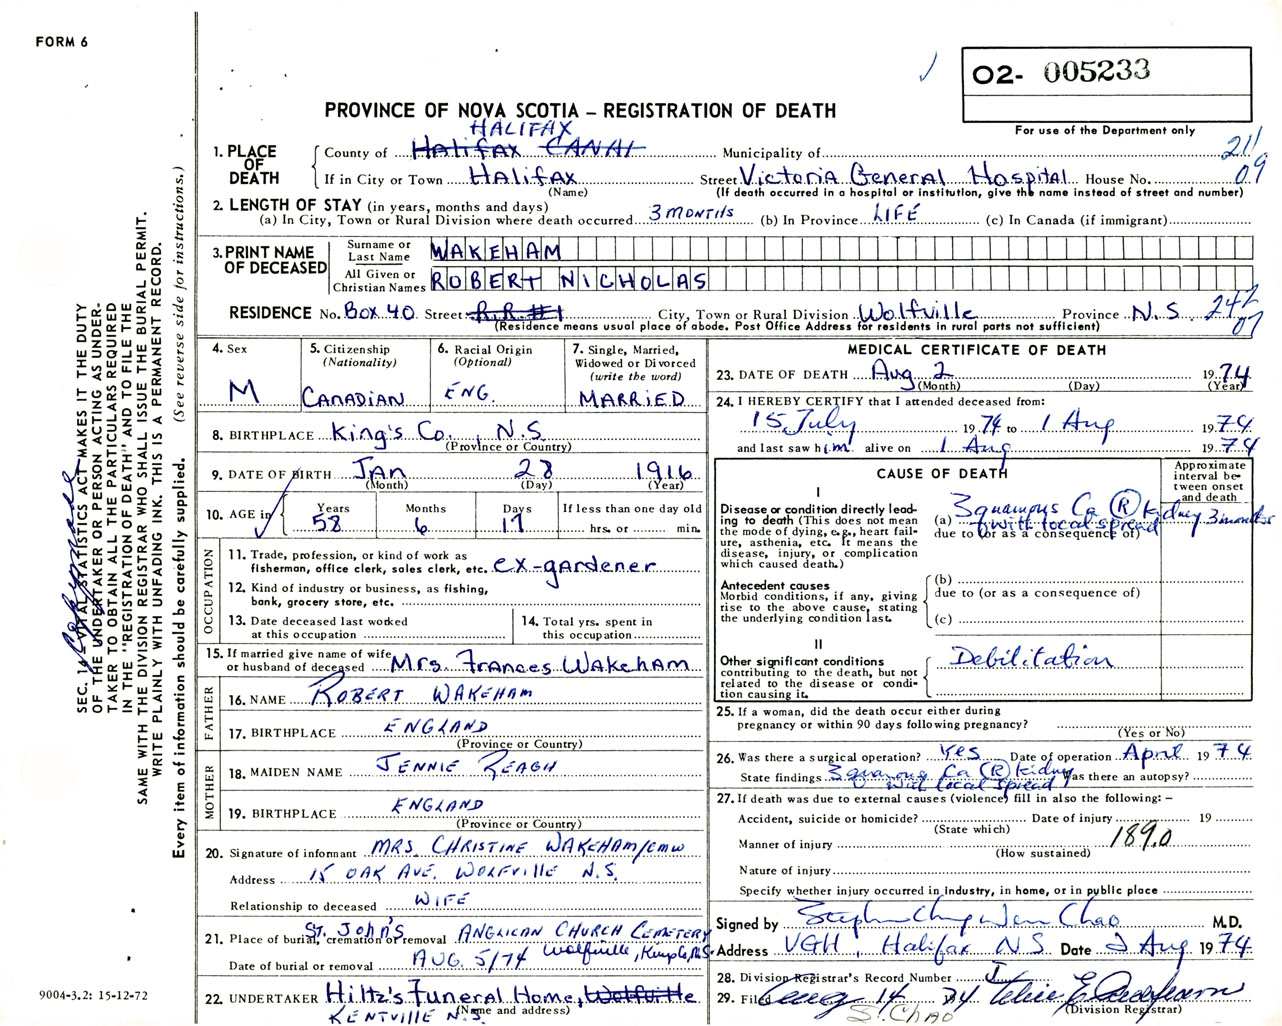 FORM 6
O2- 005233
PROVINCE OF NOVA SCOTIA – REGISTRATION OF DEATH
For use of the Department only
HALIFAX
1. PLACE OF DEATH
County of Halifax CANAI Municipality of
211
If in City or Town Halifax Street Victoria General Hospital House No.
09
(Name) (If death occurred in a hospital or institution, give the name instead of street and number)
2. LENGTH OF STAY (in years, months and days)
(a) In City, Town or Rural Division where death occurred 3 MONTHS (b) In Province LIFE (c) In Canada (if immigrant)
3. PRINT NAME OF DECEASED
Surname or Last Name WAKEHAM
All Given or Christian Names ROBERT NICHOLAS
RESIDENCE No. Box 40 Street R.R. #1 City, Town or Rural Division Wolfville Province N.S. 242
07
(Residence means usual place of abode. Post Office Address for residents in rural parts not sufficient)
4. Sex
M
5. Citizenship
(Nationality)
CANADIAN
6. Racial Origin
(Optional)
ENG.
7. Single, Married,
Widowed or Divorced
(write the word)
MARRIED
8. BIRTHPLACE King's Co., N.S.
(Province or Country)
9. DATE OF BIRTH JAN 28 1916
(Month) (Day) (Year)
10. AGE in
Years Months Days If less than one day old
58 6 17 hrs. or min.
OCCUPATION
11. Trade, profession, or kind of work as
fisherman, office clerk, sales clerk, etc. ex-gardener
12. Kind of industry or business, as fishing,
bank, grocery store, etc.
13. Date deceased last worked
at this occupation
14. Total yrs. spent in
this occupation
15. If married give name of wife
or husband of deceased Mrs. Frances Wakeham
FATHER
16. NAME ROBERT WAKEHAM
17. BIRTHPLACE ENGLAND
(Province or Country)
MOTHER
18. MAIDEN NAME JENNIE REAGH
19. BIRTHPLACE ENGLAND
(Province or Country)
20. Signature of informant MRS. CHRISTINE WAKEHAM/CMW
Address 15 OAK AVE. WOLFVILLE N.S.
Relationship to deceased WIFE
21. Place of burial, cremation or removal St. John's ANGLICAN CHURCH CEMETERY
Wolfville, Kings Co, N.S.
Date of burial or removal AUG. 5/74
22. UNDERTAKER Hiltz's Funeral Home, Wolfville
(Name and address)
KENTVILLE N.S.
MEDICAL CERTIFICATE OF DEATH
23. DATE OF DEATH Aug 2 1974
(Month) (Day) (Year)
24. I HEREBY CERTIFY that I attended deceased from:
15 July 1974 to 1 Aug 1974
and last saw him alive on 1 Aug 1974
CAUSE OF DEATH
Approximate
interval be-
tween onset
and death
I
Disease or condition directly lead-
ing to death (This does not mean
the mode of dying, e.g., heart fail-
ure, asthenia, etc. It means the
disease, injury, or complication
which caused death.)
(a) Squamous Ca (R) kidney 3 months
with local spread
due to (or as a consequence of)
Antecedent causes
Morbid conditions, if any, giving
rise to the above cause, stating
the underlying condition last.
(b)
due to (or as a consequence of)
(c)
II
Other significant conditions
contributing to the death, but not
related to the disease or condi-
tion causing it.
Debilitation
25. If a woman, did the death occur either during
pregnancy or within 90 days following pregnancy?
(Yes or No)
26. Was there a surgical operation? Yes Date of operation April 1974
State findings Squamous Ca (R) kidney Was there an autopsy?
with local spread
27. If death was due to external causes (violence) fill in also the following: –
Accident, suicide or homicide? Date of injury 19
(State which)
Manner of injury 189.0
(How sustained)
Nature of injury
Specify whether injury occurred in industry, in home, or in public place
Signed by Stephen Chao M.D.
Address VGH, Halifax N.S. Date 2 Aug 1974
28. Division Registrar's Record Number
29. Filed Aug 14 1974
(Division Registrar)
S. CHAO
SEC. 14 – VITAL STATISTICS ACT MAKES IT THE DUTY
OF THE UNDERTAKER OR PERSON ACTING AS UNDER-
TAKER TO OBTAIN ALL THE PARTICULARS REQUIRED
IN THE "REGISTRATION OF DEATH" AND TO FILE THE
SAME WITH THE DIVISION REGISTRAR WHO SHALL ISSUE THE BURIAL PERMIT.
WRITE PLAINLY WITH UNFADING INK. THIS IS A PERMANENT RECORD.
Every item of information should be carefully supplied. (See reverse side for instructions.)
9004-3.2: 15-12-72